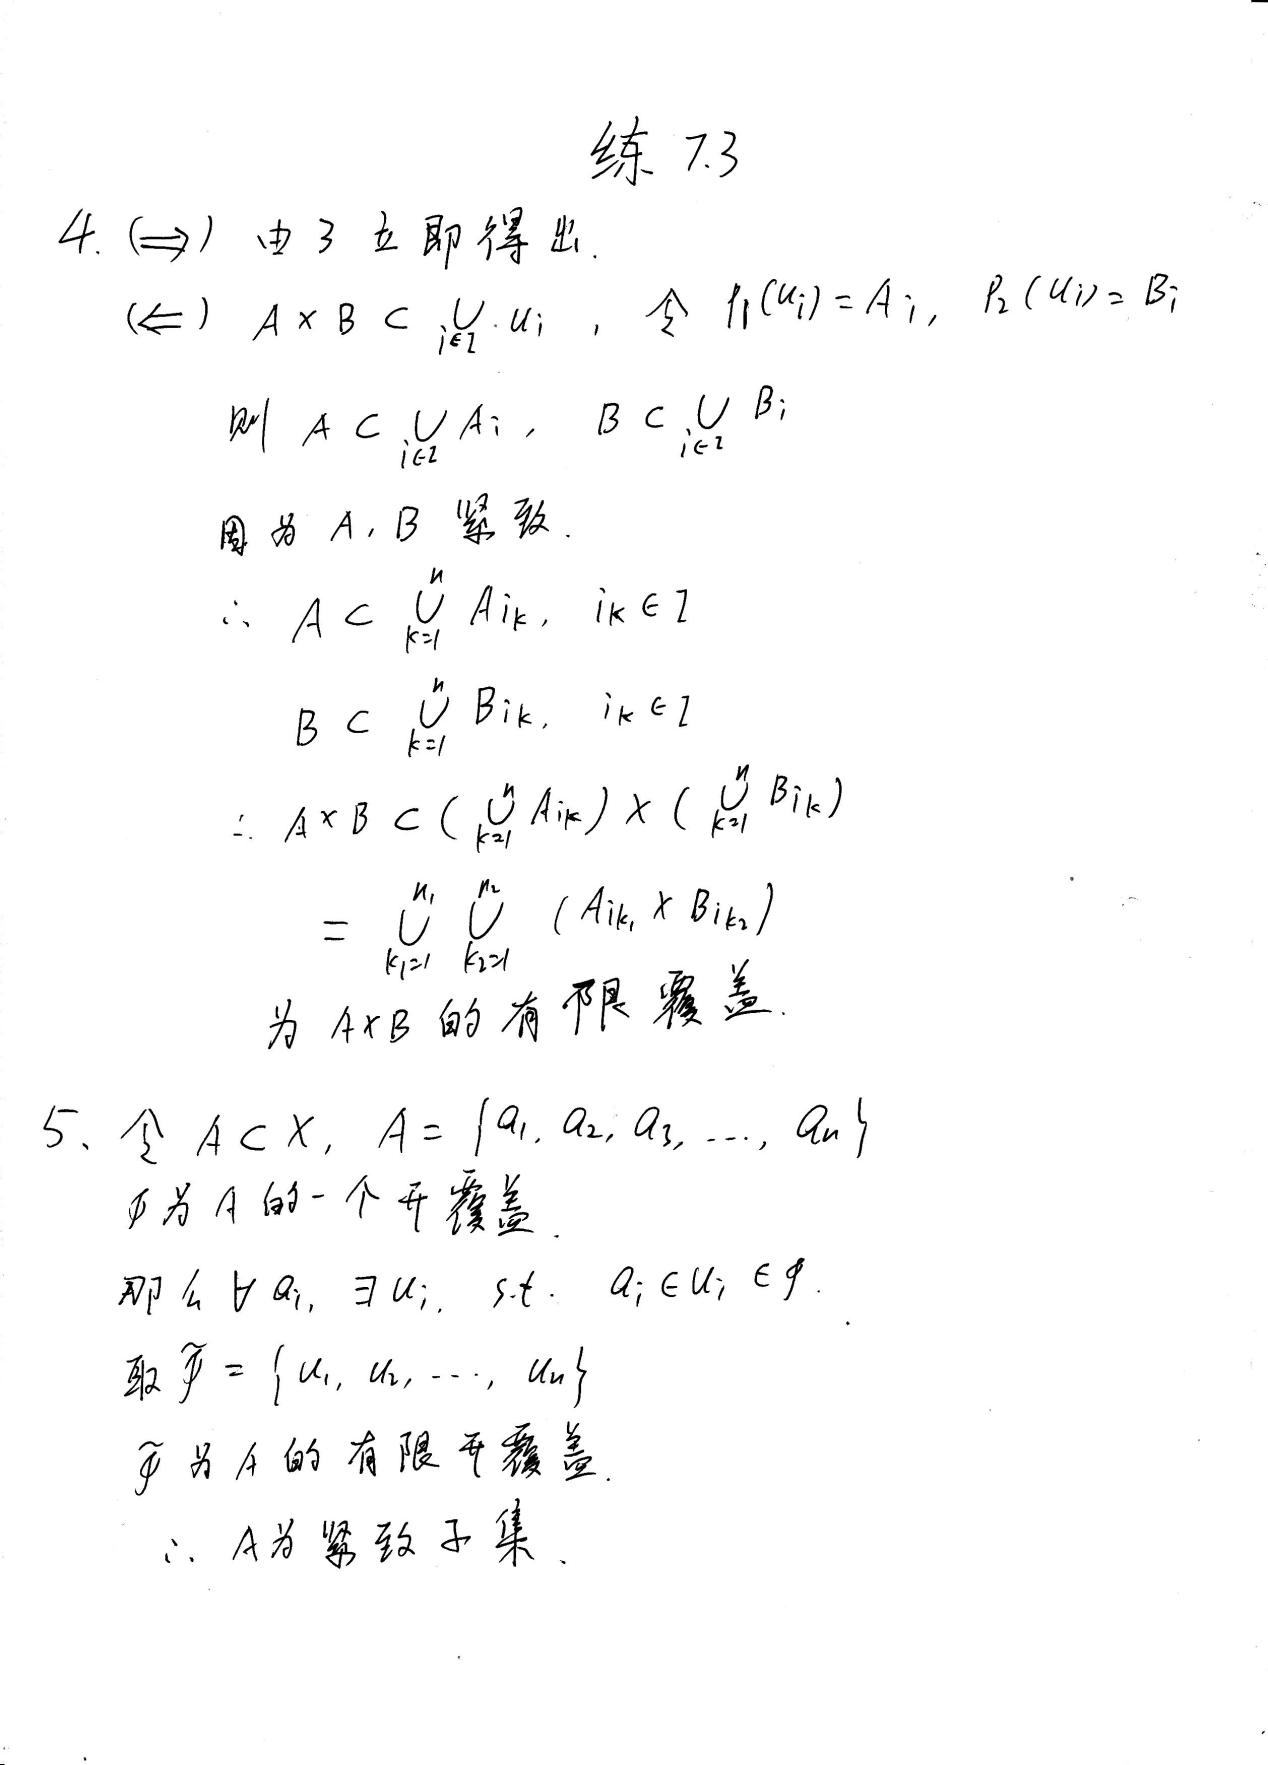 练 7.3
4. (⇒) 由 3 立即得出.
(⇐) A × B ⊂ ⋃_{i∈I} U_i , 令 P_1(U_i) = A_i, P_2(U_i) = B_i
则 A ⊂ ⋃_{i∈I} A_i, B ⊂ ⋃_{i∈I} B_i
因为 A, B 紧致.
∴ A ⊂ ⋃_{k=1}^{n} A_{ik}, i_k ∈ I
B ⊂ ⋃_{k=1}^{n} B_{ik}, i_k ∈ I
∴ A × B ⊂ ( ⋃_{k=1}^{n} A_{ik} ) × ( ⋃_{k=1}^{n} B_{ik} )
= ⋃_{k_1=1}^{n_1} ⋃_{k_2=1}^{n_2} ( A_{ik_1} × B_{ik_2} )
为 A×B 的有限覆盖.
5、令 A ⊂ X, A = {a_1, a_2, a_3, ..., a_n}
φ为A的一个开覆盖.
那么 ∀ a_i, ∃ U_i, s.t. a_i ∈ U_i ∈ φ.
取 φ̃ = {U_1, U_2, ..., U_n}
φ̃ 为 A 的有限开覆盖.
∴ A为紧致子集.